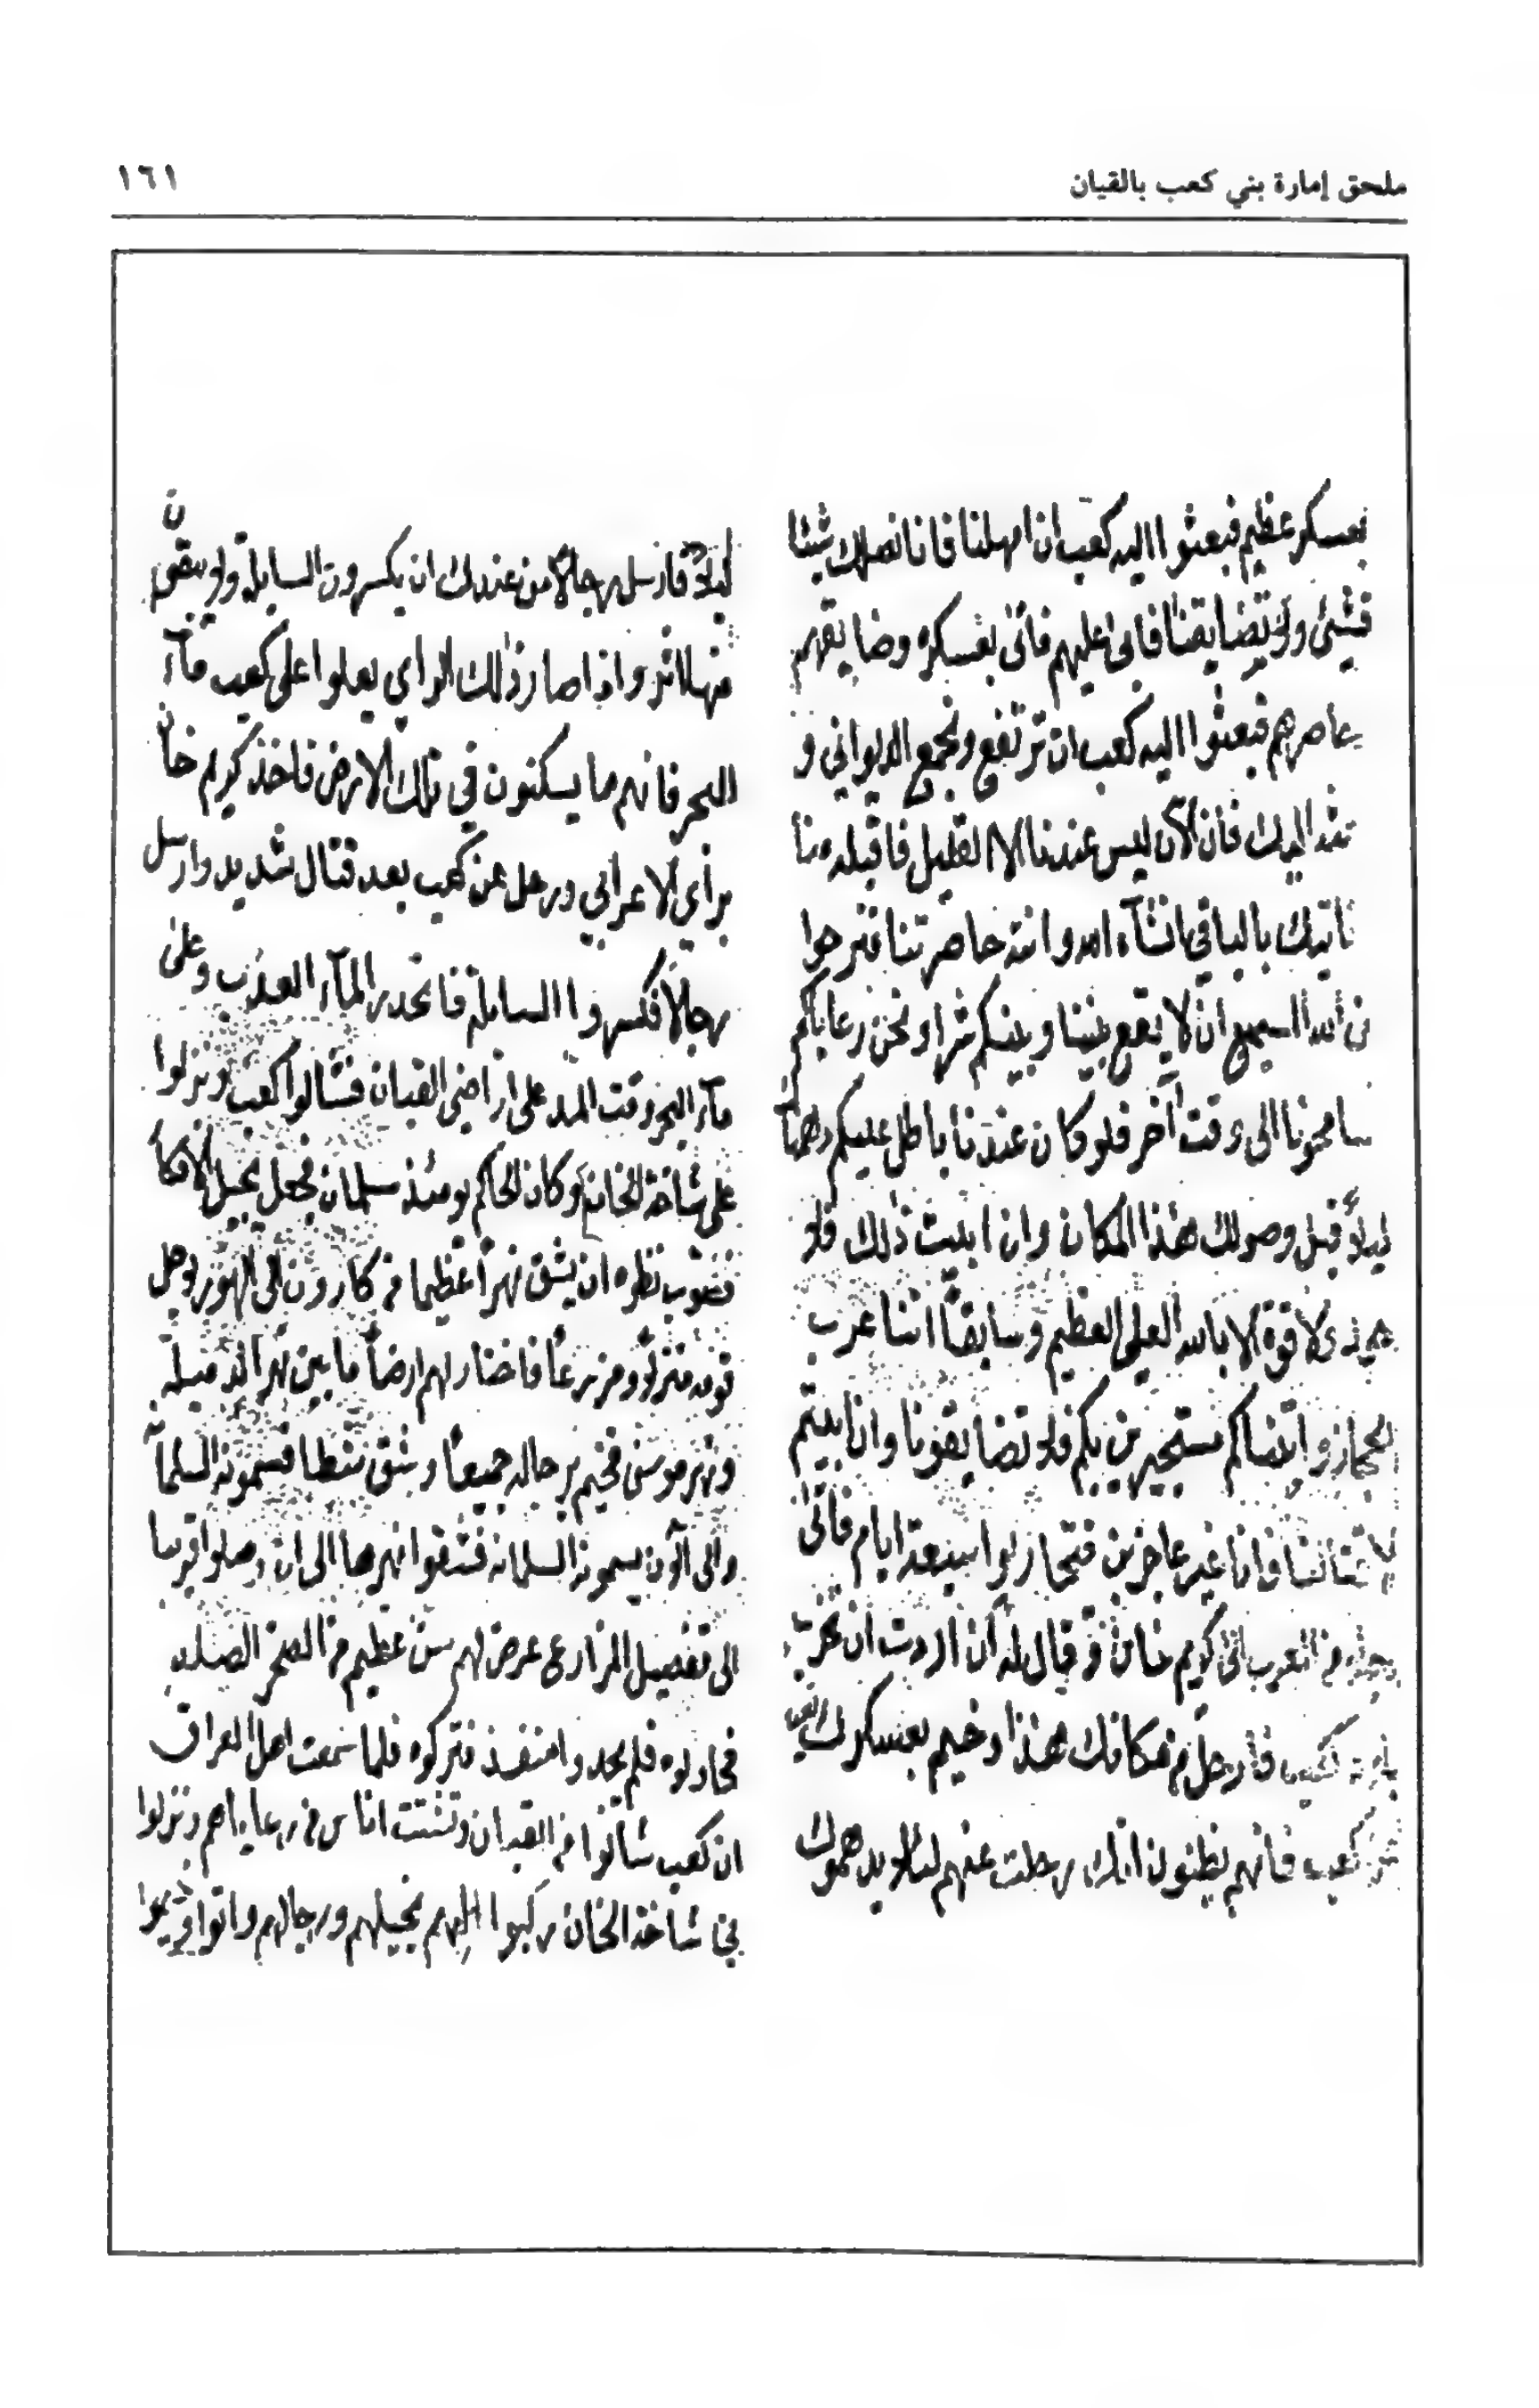 ملحق إمارة بني كعب بالقبان
١٦١
بعسكر عظيم فبعثوا اليه كعب ان امهلنا فانا نصلك شيئا
فشيئ ولا تضايقنا فابى عليهم فاتى بعسكره وضايقهم
يحاصرهم فبعثوا اليه كعب ان ترتفع ونجمع الديواني و
اليك فان الآن ليس عندنا الا القليل فاقبله منا
نأتيك بالباقي انشآء الله وانت حاصرتنا فنرجوا
من الله السميع ان لا يقع بيننا وبينكم شرا ونحن رعاياكم
سامحونا الى وقت آخر فلو كان عندنا باطل عليكم
ليلاً قبل وصولك هذا المكان وان ابيت ذلك فلا
ولا قوة الا بالله العلي العظيم وسابقاً اننا عرب
الحجاز واتيناكم مستجيرين بكم فلا تضايقونا وان ابيتم
لا فانا غير عاجزين فتحاربوا بينهم عدة ايام فاتى
من العرب الى كريم خان وقال له ان اردت ان تخرب
فارحل من مكانك هذا وخيم بعسكرك
كعب فانهم يظنون انك رحلت عنهم لئلا يدهموك
ليلاً فارسل رجالاً من عندك ان يكسرون السابلة ولا يبقى
منها اثر واذا صار ذلك الراي يعلوا على كعب مآء
البحر فانهم ما يسكنون في تلك الارض فاخذ كريم خان
برأي الاعرابي ورحل عن كعب بعد قتال شديد وارسل
رجالاً فكسروا السابلة فانحدر المآء العذب وعلى
مآء البحر وقت المد على اراضي القبان فشالوا كعب ونزلوا
على شاخة الخان وكان الحاكم يومئذ سلمان فجعل يخيل الافكار
فصوب نظره ان يشق نهراً عظيما من كارون الى الهور يوصل
قومه منزلاً ومزرعاً فاختار لهم ارضاً ما بين نهر
ونهر موسى فخيم برحاله جميعاً وشق شطا فسمونه السلمانه
والى الآن يسمونه السلمانه فشقوا نهرها الى ان وصلوا قريبا
الى تفصيل المزارع عرض لهم سن عظيم من الصخر الصلب
فحاولوه فلم يجدوا منفذ فتركوه فلما سمعت اهل العراق
ان كعب شالوا من القبان وتشتت اناس من رعاياهم ونزلوا
في شاخة الخان ركبوا اليهم بخيلهم ورجالهم واتوا